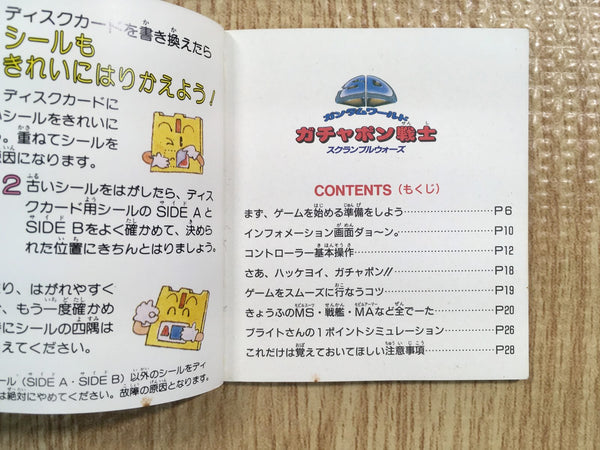 ディスクカードを書き換えたら
シールも
きれいにはりかえよう!
ディスクカードに
シールをきれいに
重ねてシールを
原因になります。
2 古いシールをはがしたら、ディス
クカード用シールの SIDE Aと
SIDE Bをよく確かめて、決めら
れた位置にきちんとはりましょう。
り、はがれやすく
もう一度確かめ
にシールの四隅は
えてください。
ール(SIDE A・SIDE B)以外のシールをディ
は絶対にやめてください。故障の原因となります。
ガンダムワールド
ガチャポン戦士
スクランブルウォーズ
CONTENTS(もくじ)
まず、ゲームを始める準備をしよう……P6
インフォメーション画面ダョ〜ン。……P10
コントローラー基本操作……P12
さあ、ハッケヨイ、ガチャポン!!……P18
ゲームをスムーズに行なうコツ……P19
きょうふのMS・戦艦・MAなど全でーた……P20
ブライトさんの1ポイントシミュレーション……P26
これだけは覚えておいてほしい注意事項……P28